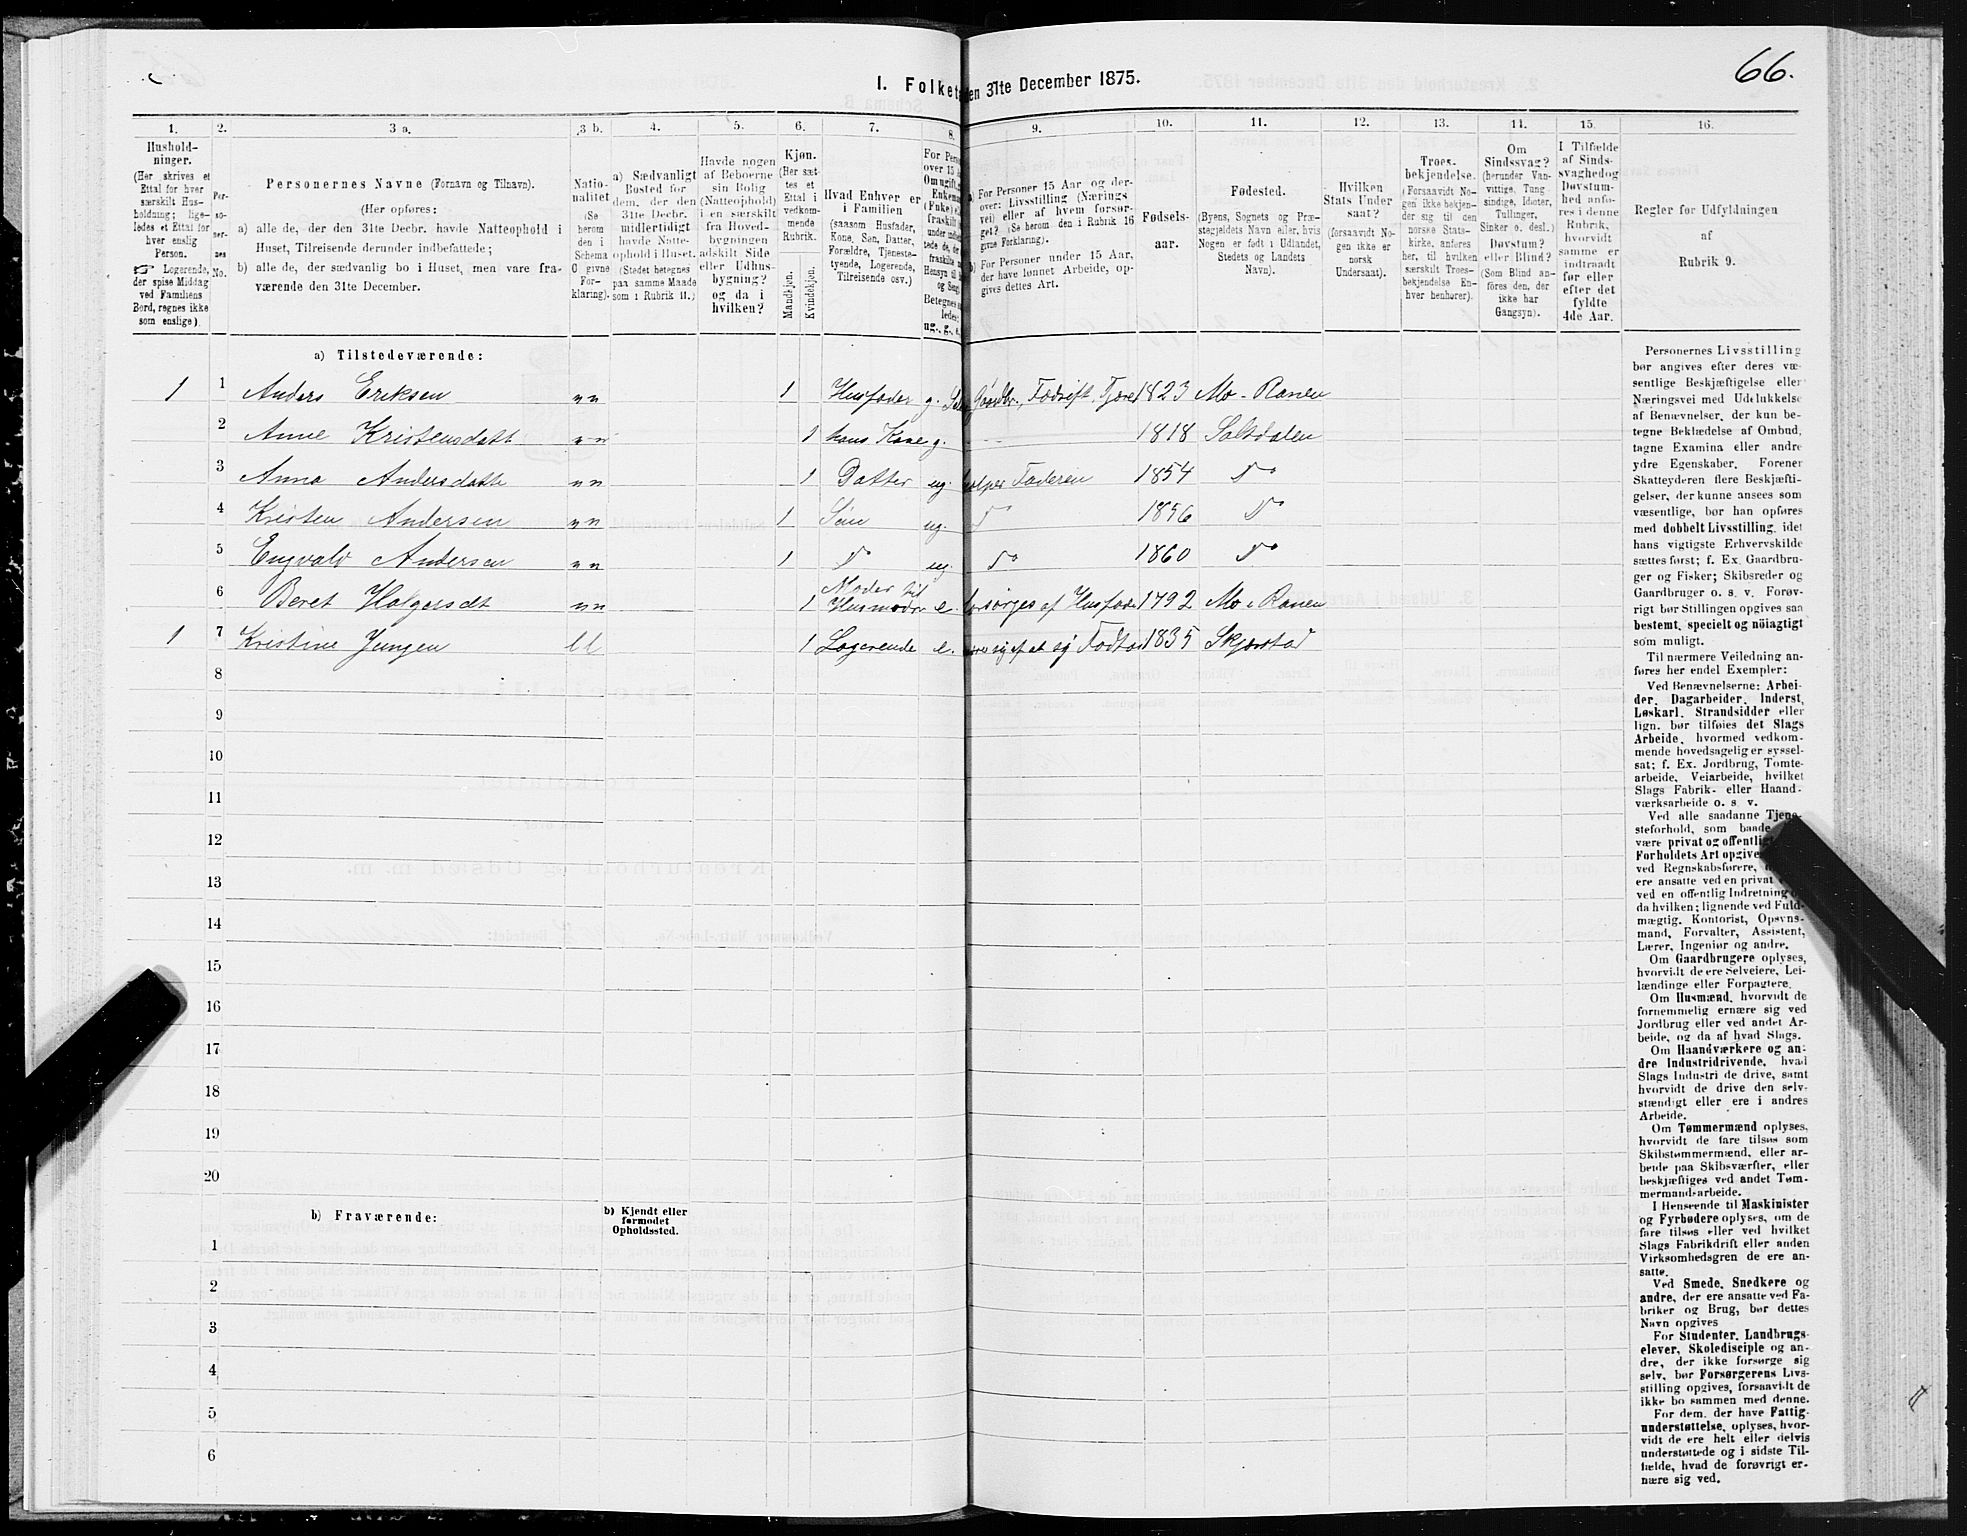 66.
I. Folket en 31te December 1875.
1. 2. 3 a. 3 b. 4. 5. 6. 7. 8. 9. 10. 11. 12. 13. 14. 15. 16.
Hushold-
ninger.
(Her skrives et
Ettal for hver
særskilt Hus-
holdning; lige-
ledes et Ettal for
hver enslig
Person.
☞ Logerende,
der spise Middag
ved Familiens
Bord, regnes ikke
som enslige).
Per-
so-
ner-
nes
No.
Personernes Navne (Fornavn og Tilnavn).
(Her opføres:
a) alle de, der den 31te Decbr. havde Natteophold i
Huset, Tilreisende derunder indbefattede;
b) alle de, der sædvanlig bo i Huset, men vare fra-
værende den 31te December.
Natio-
nalitet
(Se
herom
den i
Schema
C givne
For-
klaring).
a) Sædvanligt
Bosted for
dem, der den
31te Decbr.
midlertidigt
havde Natte-
ophold i Huset.
(Stedet betegnes
paa samme Maade
som i Rubrik 11.)
Havde nogen
af Beboerne
sin Bolig
(Natteophold)
i en særskilt
fra Hoved-
bygningen
adskilt Side
eller Udhus-
bygning?
og da i
hvilken?
Kjøn.
(Her sæt-
tes et
Ettal i
vedkom-
mende
Rubrik.
Mandkjøn.
Kvindekjøn.
Hvad Enhver er
i Familien
(saasom Husfader,
Kone, Søn, Datter,
Forældre, Tjeneste-
tyende, Logerende,
Tilreisende osv.)
For Pers
over 15
Om ugift,
Enkema
(Fuke) e
fraskilt
a) For Personer 15 Aar og der-
over: Livsstilling (Nærings
vei) eller af hvem forsør-
get? (Se herom den i Rubrik 16
givne Forklaring).
b) For Personer under 15 Aar,
der have lønnet Arbeide, op-
gives dettes Art.
Fødsels-
aar.
Fødested.
(Byens, Sognets og Præ-
stegjeldets Navn eller, hvis
Nogen er født i Udlandet,
Stedets og Landets
Navn).
Hvilken
Stats Under
saat?
(forsaavidt No-
gen ikke er
norsk
Undersaat).
Troes-
bekjendelse.
(Forsaavidt No-
gen ikke bekjen-
der sig til den
norske Stats-
kirke, anføres
her, til hvilken
særskilt Troes-
bekjendelse En-
hver henhører).
Om
Sindssvag?
(herunder Van-
vittige, Tung
sindige, Idioter,
Tullinger,
Sinker o. desl.)
Døvstum?
eller Blind?
(Som Blind an-
føres den, der
ikke har
Gangsyn).
I Tilfælde
af Sinds-
svaghed og
Døvstum-
hed anfø-
res i denne
Rubrik,
hvorvidt
samme er
indtraadt
før eller
efter det
fyldte
4de Aar.
Regler for Udfyldningen
af
Rubrik 9.
a) Tilstedeværende:
1 1 Anders Eriksen nn 1 Husfader g. Gaardbr., Fødrift 1823 Mo-Ranen
2 Anne Kristensdatt nn 1 hans Kone g. 1818 Saltdalen
3 Anna Andersdatte nn 1 Datter ug. Faderen 1854 Do
4 Kristen Andersen nn 1 Søn ug. Do 1856 Do
5 Engvald Andersen nn 1 Do ug. Do 1860 Do
6 Beret Holgersdt nn 1 Moder til Husmodr e. forsørges af Husfade 1792 Mo i Ranen
1 7 Kristine Jensen 1 Logerende e. 1835 Skjerstad
8
9
10
11
12
13
14
15
16
17
18
19
20
b) Fraværende:
b) Kjendt eller
formodet
Opholdssted.
1
2
3
4
5
6
Personernes Livsstilling
bør angives efter deres væ-
sentlige Beskjæftigelse eller
Næringsvei med Udelukkelse
af Benævnelser, der kun be-
tegne Beklædelse af Ombud,
tagne Examina eller andre
ydre Egenskaber. Forener
Skatteyderen flere Beskjæfti-
gelser, der kunne ansees som
væsentlige, bør han opføres
med dobbelt Livsstilling, idet
hans vigtigste Erhvervskilde
sættes først; f. Ex. Gaardbru-
ger og Fisker; Skibsreder og
Gaardbruger o. s. v. Forøv-
rigt bør Stillingen opgives saa
bestemt, specielt og nøiagtigt
som muligt.
Til nærmere Veiledning an-
føres her endel Exempler:
Ved Benævnelserne: Arbei-
der, Dagarbeider, Inderst,
Løskarl, Strandsidder eller
lign. bør tilføies det Slags
Arbeide, hvormed vedkom-
mende hovedsagelig er syssel-
sat; f. Ex. Jordbrug, Tomte-
arbeide, Veiarbeide, hvilket
Slags Fabrik- eller Haand-
værksarbeide o. s. v.
Ved alle saadanne Tjene-
steforhold, som baade
være privat og offentligt
Forholdets Art opgive
ved Regnskabsførere,
ere ansatte ved en privat
ved en offentlig Indretning
da hvilken; lignende ved Fuld-
mægtig, Kontorist, Opsyns-
mand, Forvalter, Assistent,
Lærer, Ingeniør og andre.
Om Gaardbrugere oplyses,
hvorvidt de ere Selveiere, Lei-
lændinge eller Forpagtere.
Om Husmænd, hvorvidt de
fornemmelig ernære sig ved
Jordbrug eller ved andet Ar-
beide, og da af hvad Slags.
Om Haandværkere og an-
dre Industridrivende, hvad
Slags Industri de drive, samt
hvorvidt de drive den selv-
stændigt eller ere i andres
Arbeide.
Om Tømmermænd oplyses,
hvorvidt de fare tilsøs som
Skibstømmermænd, eller ar-
beide paa Skibsværfter, eller
beskjæftiges ved andet Tøm-
mermandsarbeide.
I Henseende til Maskinister
og Fyrbødere oplyses, om de
fare tilsøs eller ved hvilket
Slags Fabrikdrift eller anden
Virksomhedsgren de ere an-
satte.
Ved Smede, Snedkere og
andre, der ere ansatte ved Fa-
briker og Brug, bør dettes
Navn opgives
For Studenter, Landbrugs-
elever, Skoledisciple og an-
dre, der ikke forsørge sig
selv, bør Forsørgerens Livs-
stilling opgives, forsaavidt de
ikke bo sammen med denne.
For dem, der have Fattig-
understøttelse, oplyses, hvor-
vidt de ere helt eller delvis
understøttede og i sidste Til-
fælde, hvad de forøvrigt er-
nære sig ved.